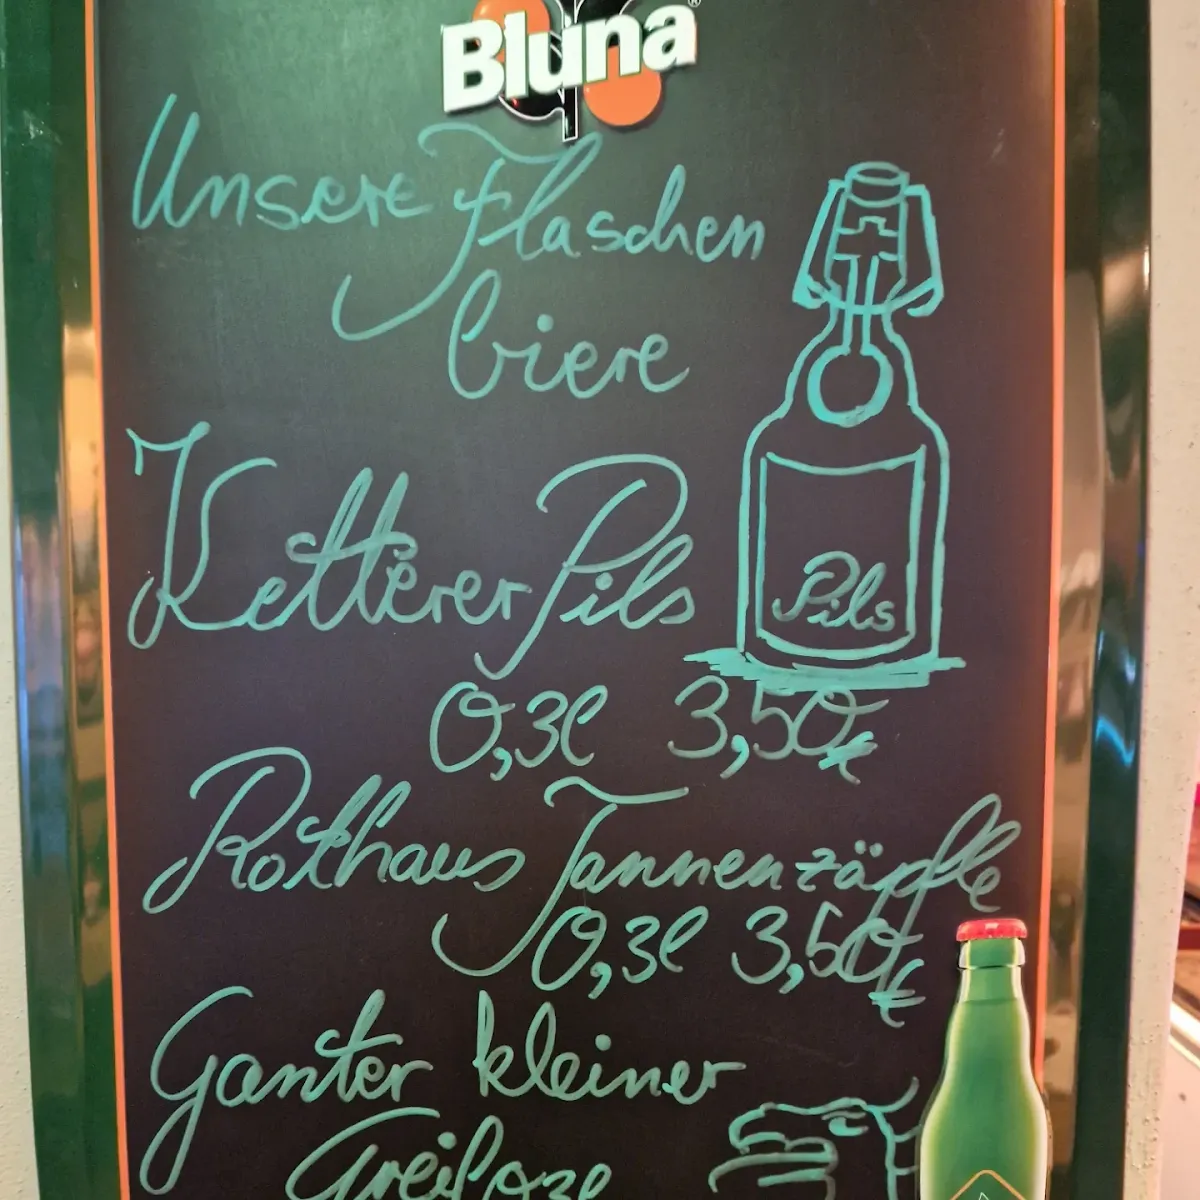 Bluna®
Unsere Flaschen
biere
Ketterer Pils
Pils
0,3l 3,50€
Rothaus Tannenzäpfle
0,3l 3,50€
Ganter kleiner
Greif 0,3l